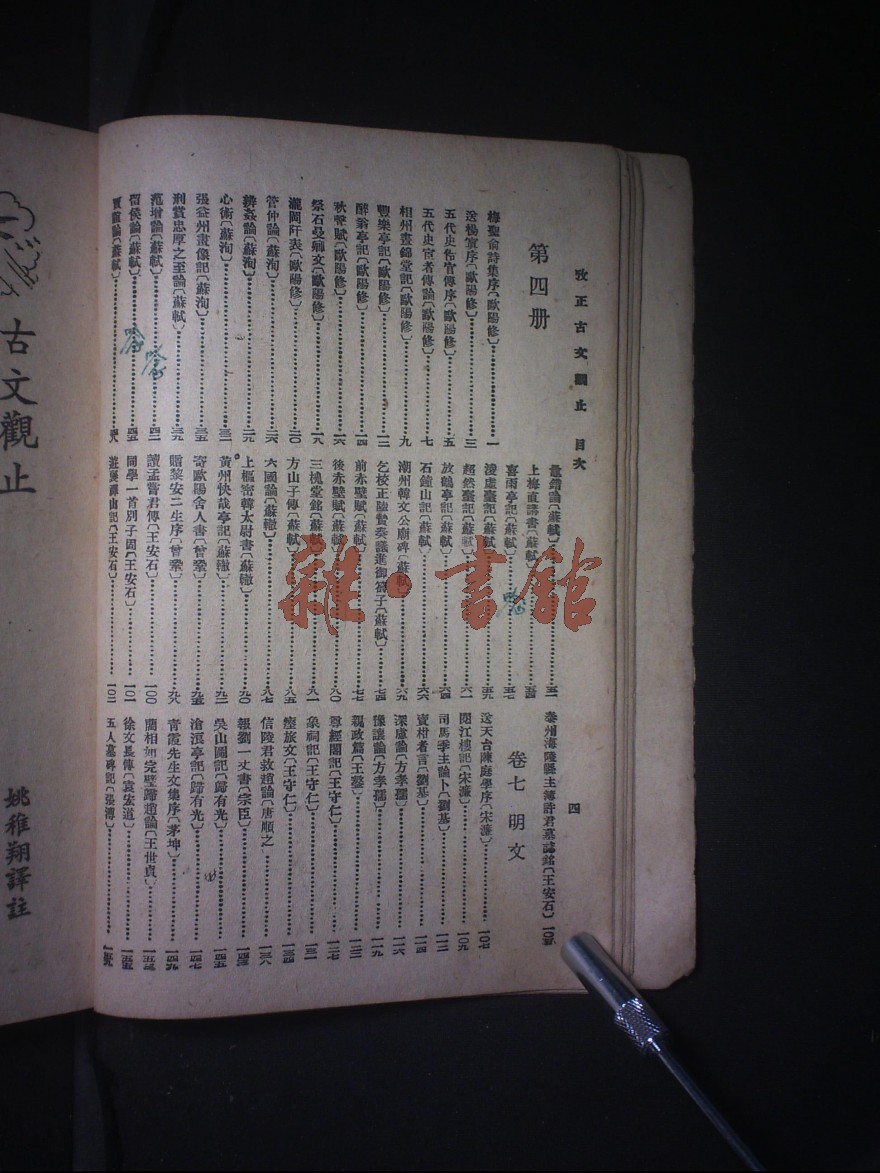 攷正古文觀止 目次
四
第四册
梅聖俞詩集序〔歐陽修〕…………一
送楊寘序〔歐陽修〕…………三
五代史伶官傳序〔歐陽修〕…………五
五代史宦者傳論〔歐陽修〕…………七
相州晝錦堂記〔歐陽修〕…………九
豐樂亭記〔歐陽修〕…………一二
醉翁亭記〔歐陽修〕…………一四
秋聲賦〔歐陽修〕…………一六
祭石曼卿文〔歐陽修〕…………一九
瀧岡阡表〔歐陽修〕…………二〇
管仲論〔蘇洵〕…………二六
辨姦論〔蘇洵〕…………二九
心術〔蘇洵〕…………三二
張益州畫像記〔蘇洵〕…………三五
刑賞忠厚之至論〔蘇軾〕…………三九
范增論〔蘇軾〕…………四二
留侯論〔蘇軾〕…………四五
賈誼論〔蘇軾〕…………四八
鼂錯論〔蘇軾〕…………五一
上梅直講書〔蘇軾〕…………五四
喜雨亭記〔蘇軾〕…………五七
凌虛臺記〔蘇軾〕…………五九
超然臺記〔蘇軾〕…………六一
放鶴亭記〔蘇軾〕…………六四
石鐘山記〔蘇軾〕…………六六
潮州韓文公廟碑〔蘇軾〕…………六九
乞校正陸贄奏議進御劄子〔蘇軾〕…………七四
前赤壁賦〔蘇軾〕…………七七
後赤壁賦〔蘇軾〕…………八〇
三槐堂銘〔蘇軾〕…………八一
方山子傳〔蘇軾〕…………八五
六國論〔蘇轍〕…………八七
上樞密韓太尉書〔蘇轍〕…………九〇
黃州快哉亭記〔蘇轍〕…………九二
寄歐陽舍人書〔曾鞏〕…………九五
贈黎安二生序〔曾鞏〕…………九八
讀孟嘗君傳〔王安石〕…………一〇〇
同學一首別子固〔王安石〕…………一〇一
遊褒禪山記〔王安石〕…………一〇二
泰州海陵縣主簿許君墓誌銘〔王安石〕一〇五
卷七 明文
送天台陳庭學序〔宋濂〕…………一〇七
閱江樓記〔宋濂〕…………一〇九
司馬季主論卜〔劉基〕…………一一二
賣柑者言〔劉基〕…………一一四
深慮論〔方孝孺〕…………一一六
豫讓論〔方孝孺〕…………一一九
親政篇〔王鏊〕…………一二三
尊經閣記〔王守仁〕…………一二七
象祠記〔王守仁〕…………一三一
瘞旅文〔王守仁〕…………一三四
信陵君救趙論〔唐順之〕…………一三八
報劉一丈書〔宗臣〕…………一四三
吳山圖記〔歸有光〕…………一四五
滄浪亭記〔歸有光〕…………一四七
青霞先生文集序〔茅坤〕…………一四九
藺相如完璧歸趙論〔王世貞〕…………一五三
徐文長傳〔袁宏道〕…………一五五
五人墓碑記〔張溥〕…………一五九
古文觀止
姚稚翔譯註
雜·書館